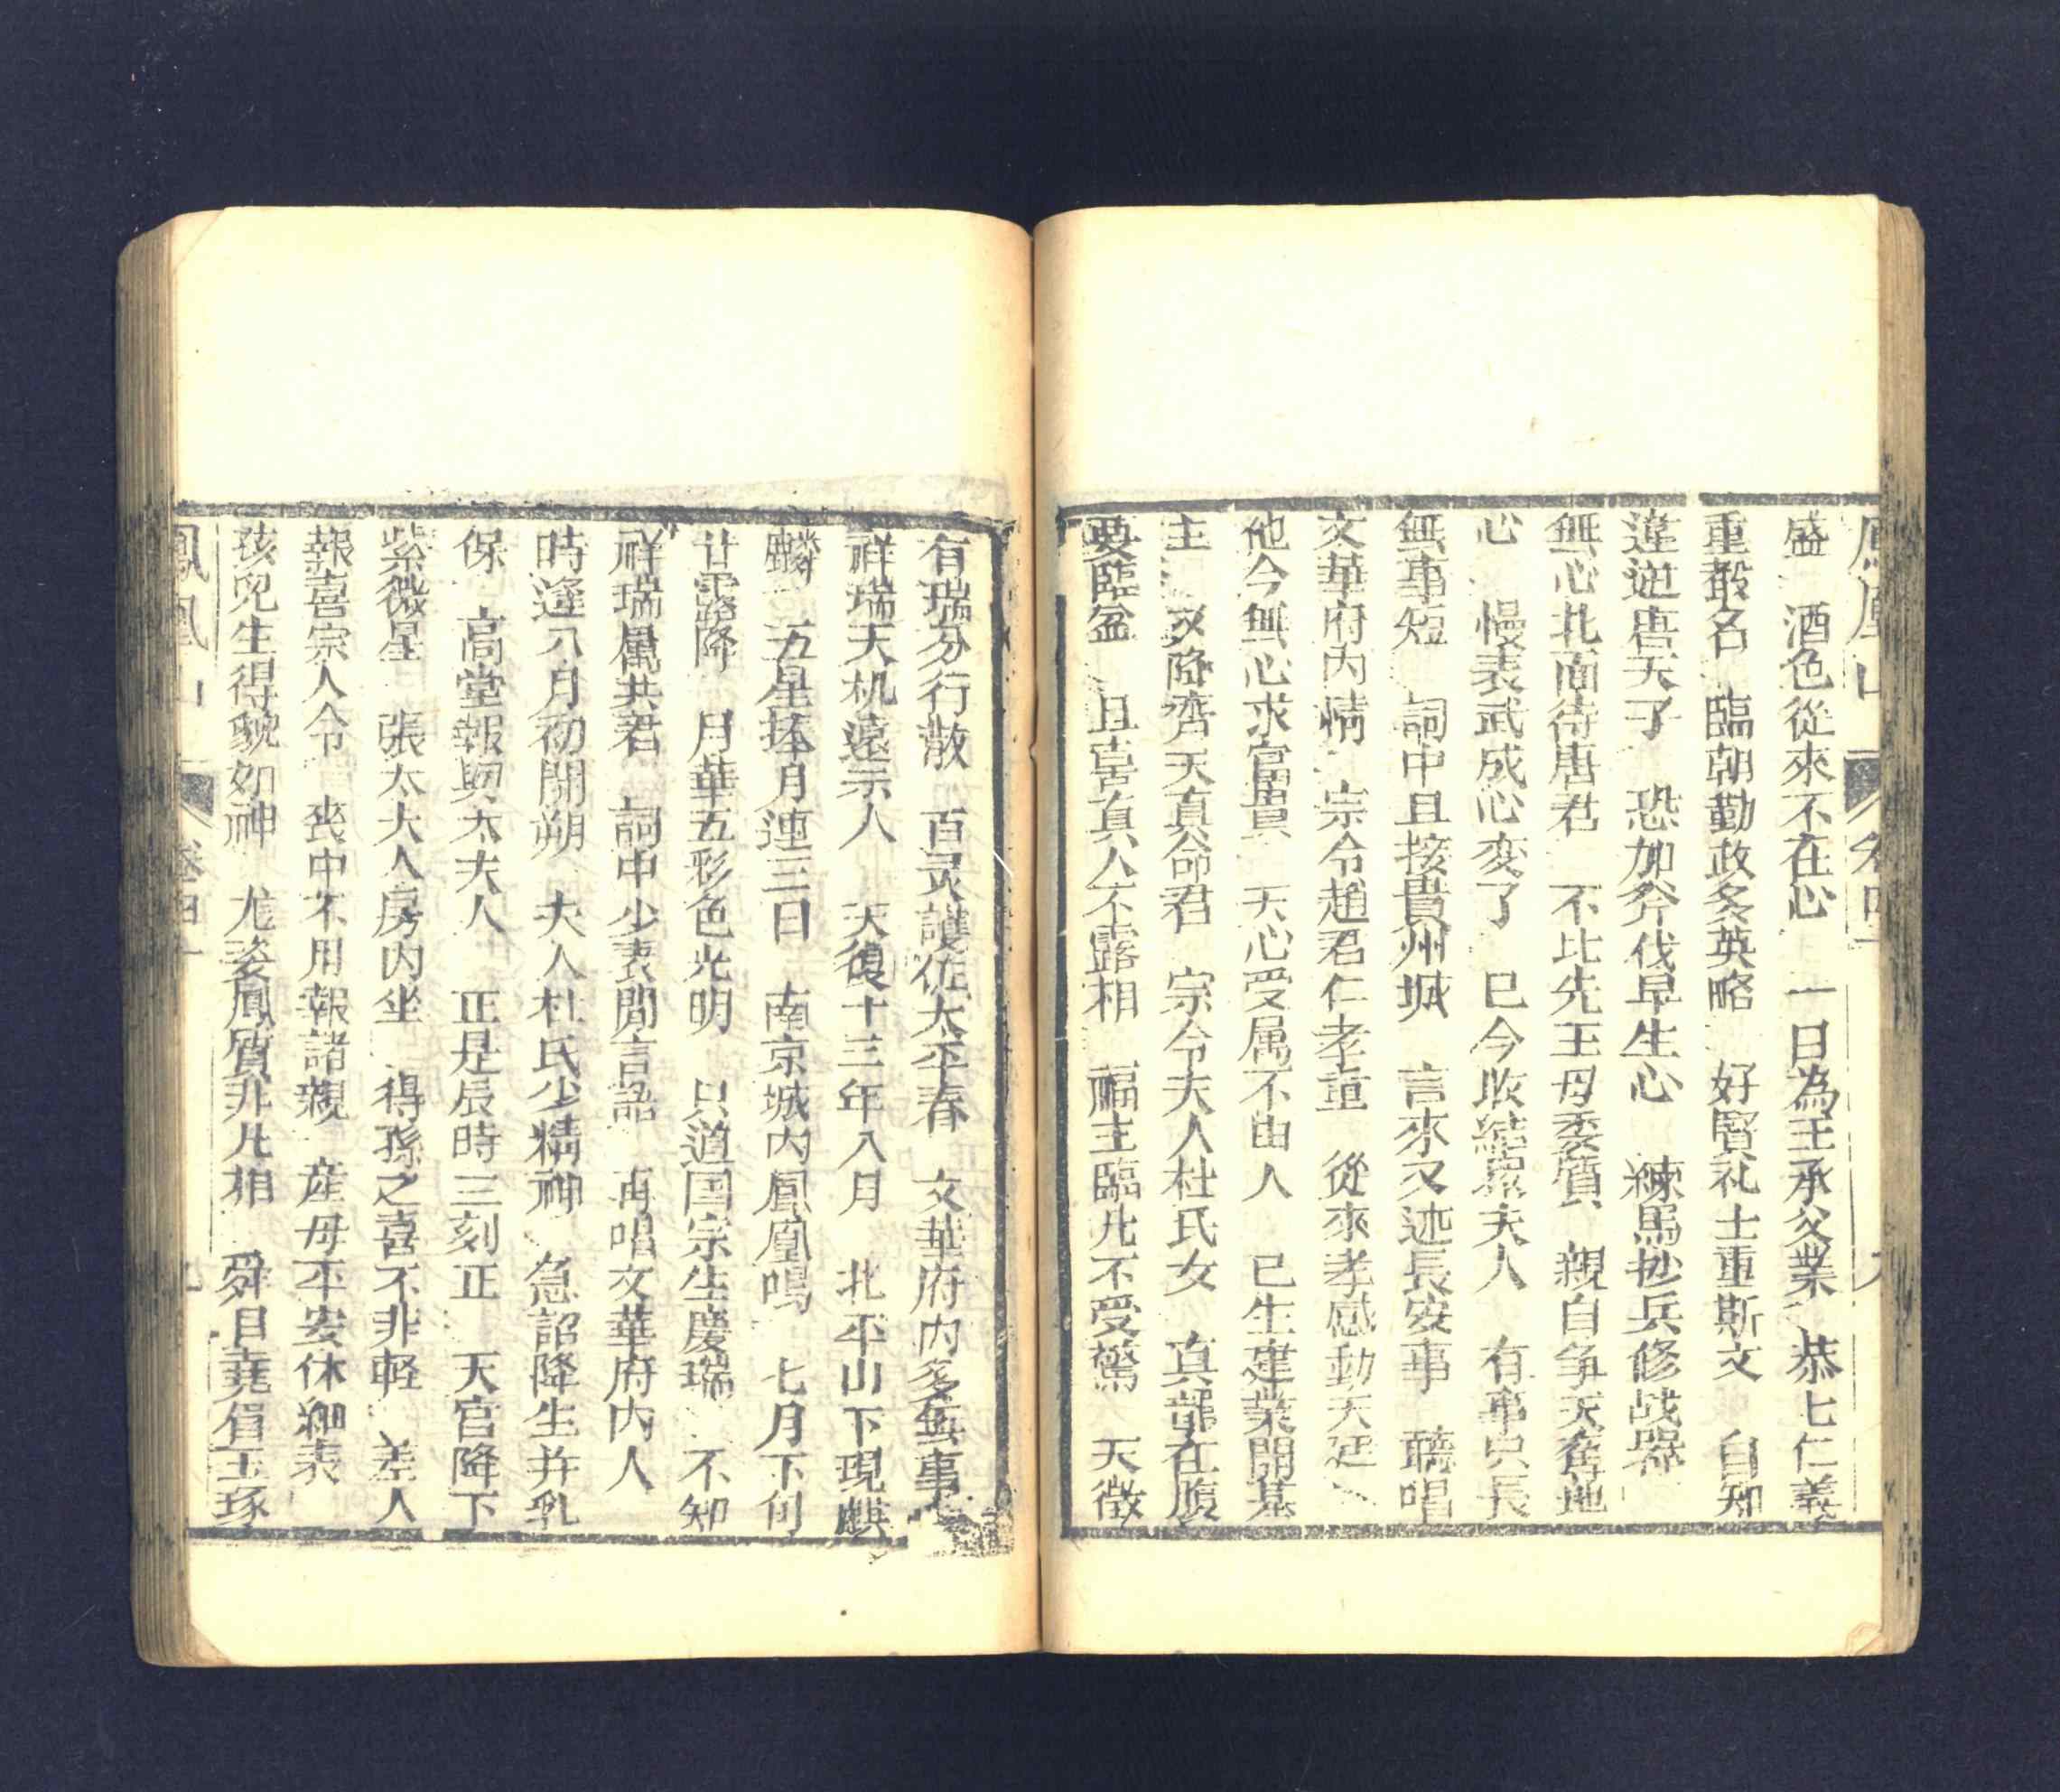 鳳凰山 卷四
盛 酒色從來不在心 一日為王承父業 恭七仁義
重敢名 臨朝勤政多英略 好賢礼士重斯文 自知
違逆唐天子 恐加斧伐早生心 練馬抄兵修战器
無心北面待唐君 不比先王母委質 親自争天奪地
心 慢表武成心変了 巳今收結眾夫人 有事只長
無事短 詞中且接貴州城 言來又述長安事 聽唱
文華府内情 宗令趙君仁孝重 從來孝感動天廷
他今無心求富貴 天心受属不由人 已生建業開基
主 又降濟天真命君 宗令夫人杜氏女 真龍在腹
要臨盆 且喜真人不露相 福主臨凡不受驚 天徵
有瑞分行散 百灵護佐太平春 文華府内多無事
祥瑞天机遠示人 天復十三年八月 北平山下現麒
麟 五星捧月連三日 南京城内鳳凰鳴 七月下旬
甘露降 月華五彩色光明 只道国宗生慶瑞 不知
祥瑞属共君 詞中少表閒言語 再唱文華府内人
時逢八月初開朔 夫人杜氏少精神 急詔降生并乳
保 高堂報與太夫人 正是辰時三刻正 天宫降下
紫微星 張太夫人房内坐 得孫之喜不非軽 差人
報喜宗人令 丧中不用報諸親 産母平安休細表
孩兒生得貌如神 尤姿鳳質非凡相 舜目堯眉玉琢
鳳凰山 卷四 九